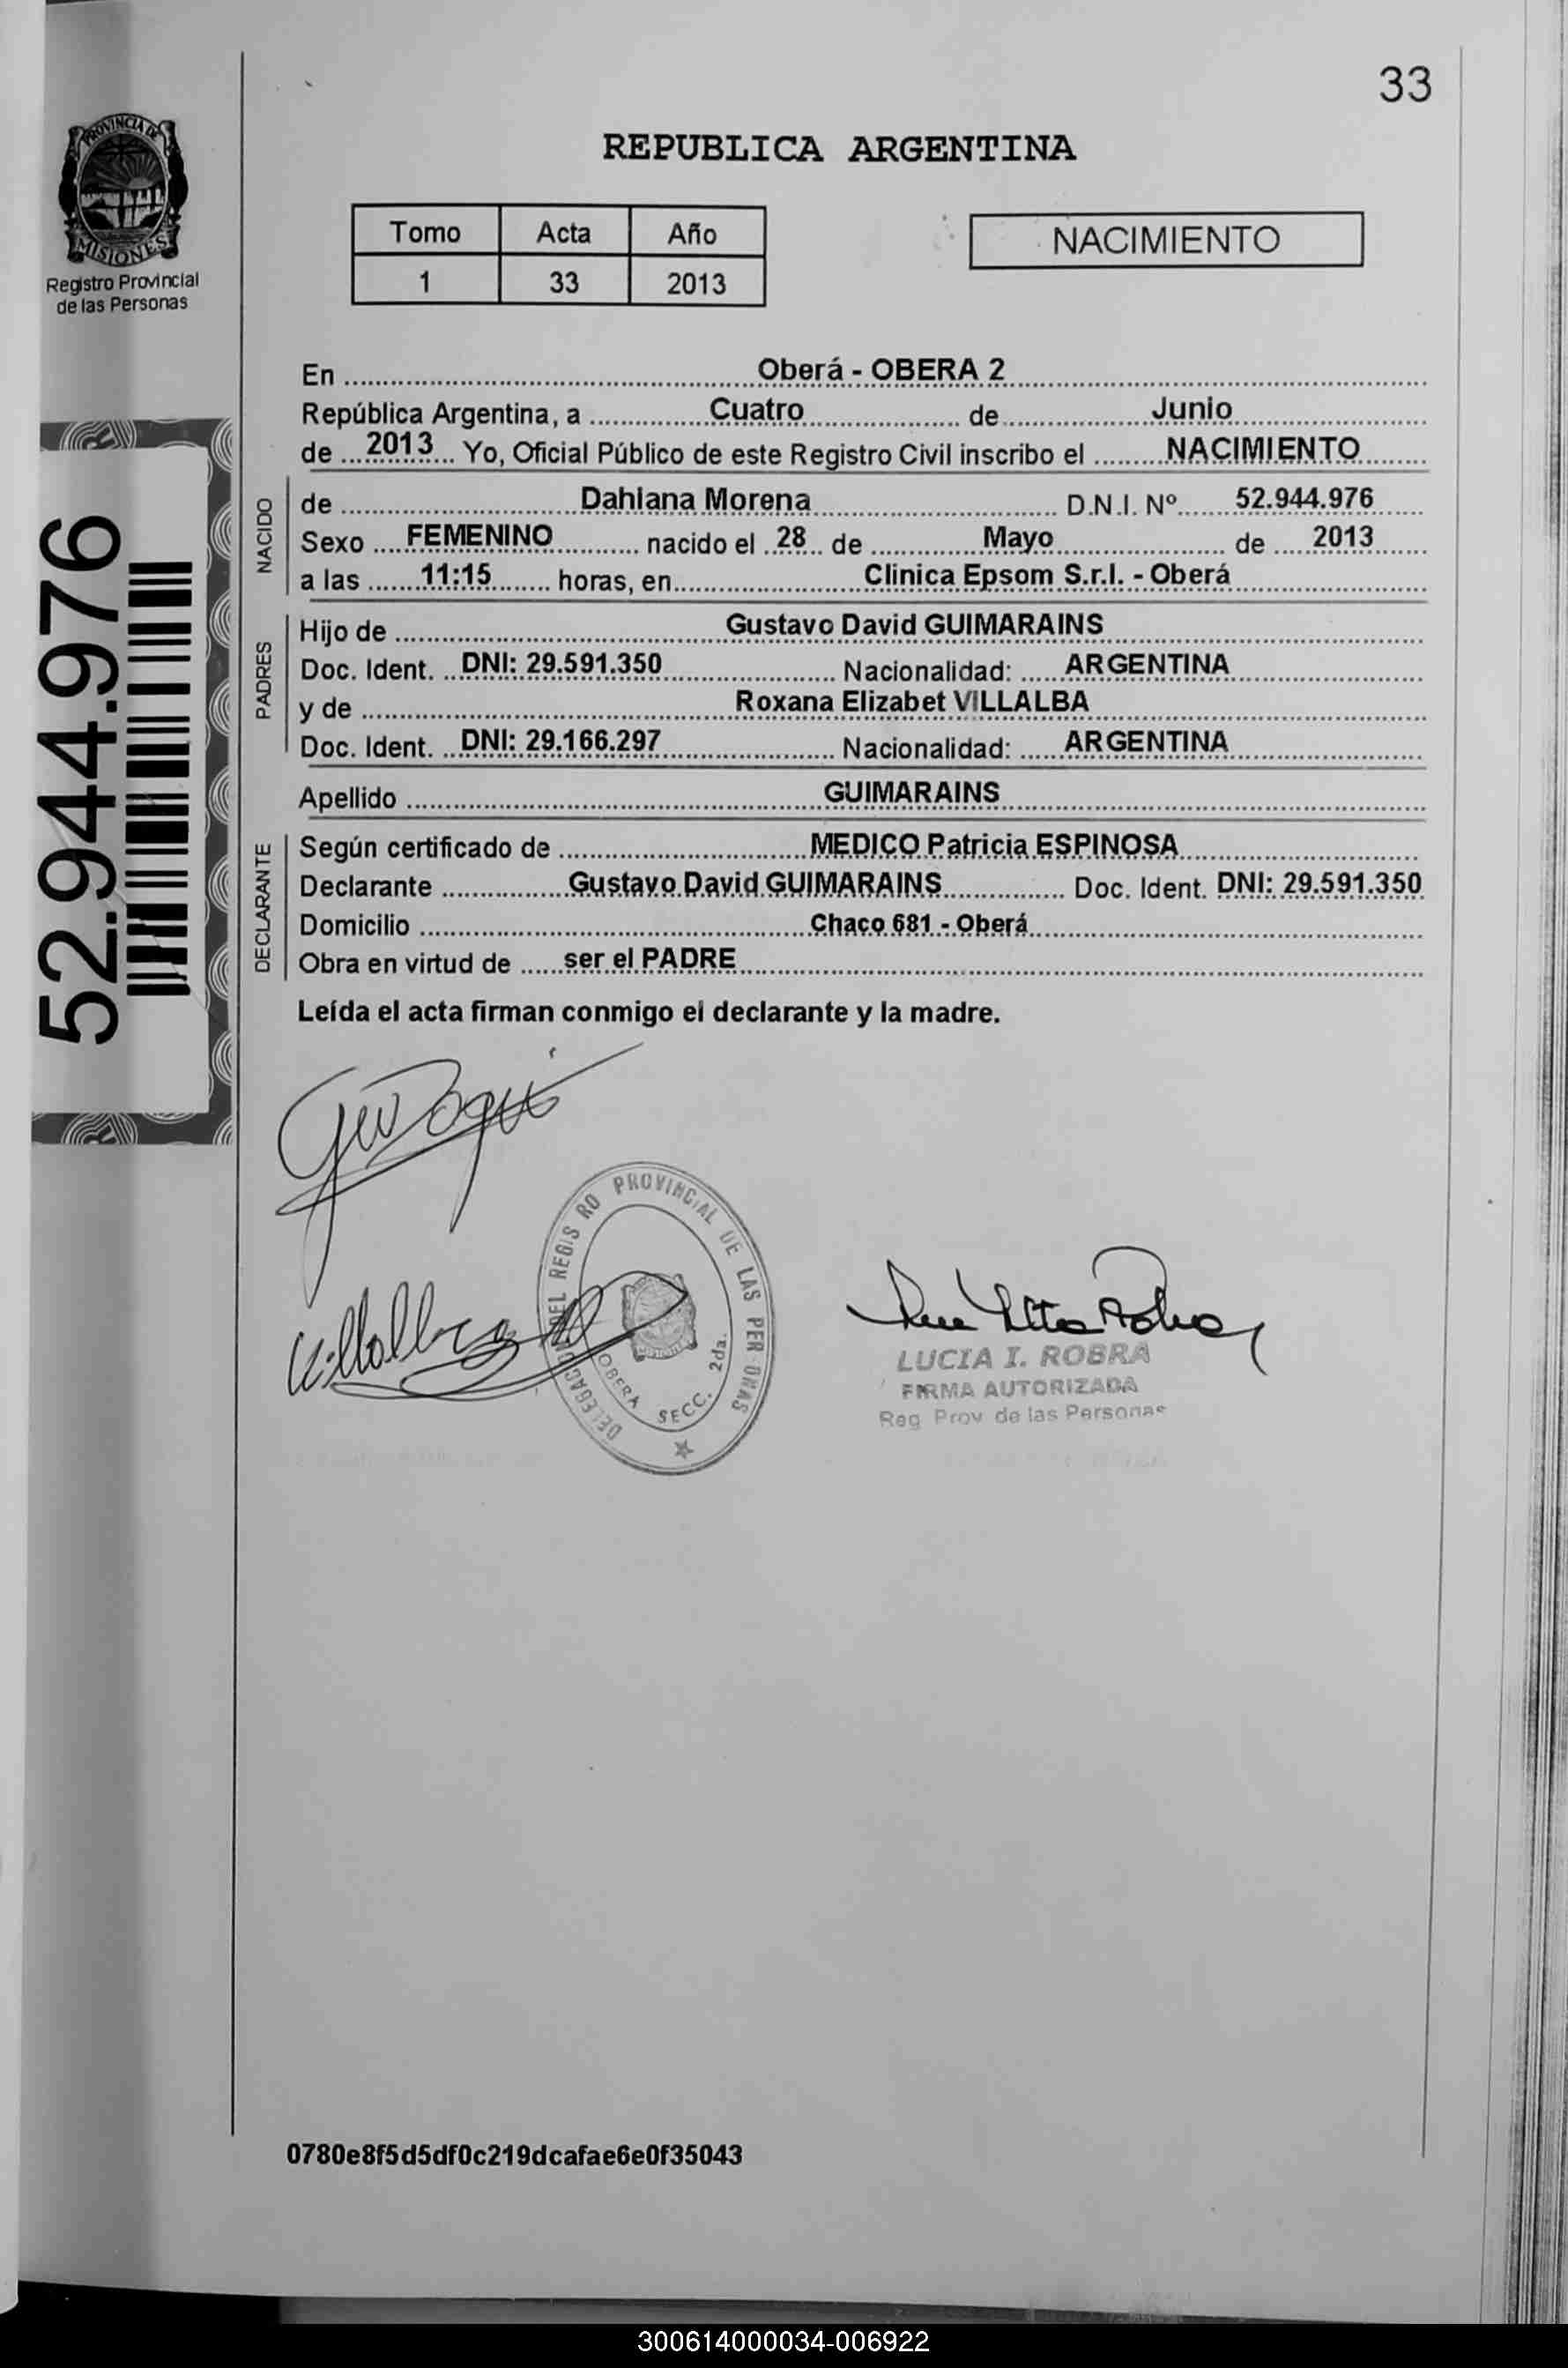 33
PROVINCIA DE
MISIONES
Registro Provincial
de las Personas
REPUBLICA ARGENTINA
Tomo Acta Año
1 33 2013
NACIMIENTO
52.944.976
En Oberá - OBERA 2
República Argentina, a Cuatro de Junio
de 2013 Yo, Oficial Público de este Registro Civil inscribo el NACIMIENTO
NACIDO
de Dahiana Morena D.N.I. Nº 52.944.976
Sexo FEMENINO nacido el 28 de Mayo de 2013
a las 11:15 horas, en Clinica Epsom S.r.l. - Oberá
PADRES
Hijo de Gustavo David GUIMARAINS
Doc. Ident. DNI: 29.591.350 Nacionalidad: ARGENTINA
y de Roxana Elizabet VILLALBA
Doc. Ident. DNI: 29.166.297 Nacionalidad: ARGENTINA
Apellido GUIMARAINS
DECLARANTE
Según certificado de MEDICO Patricia ESPINOSA
Declarante Gustavo David GUIMARAINS Doc. Ident. DNI: 29.591.350
Domicilio Chaco 681 - Oberá
Obra en virtud de ser el PADRE
Leída el acta firman conmigo el declarante y la madre.
DELEGACION DEL REGIS RO PROVINCIAL DE LAS PER ONAS
OBERA SECC. 2da.
LUCIA I. ROBRA
FIRMA AUTORIZADA
Reg Prov de las Personas
0780e8f5d5df0c219dcafae6e0f35043
300614000034-006922